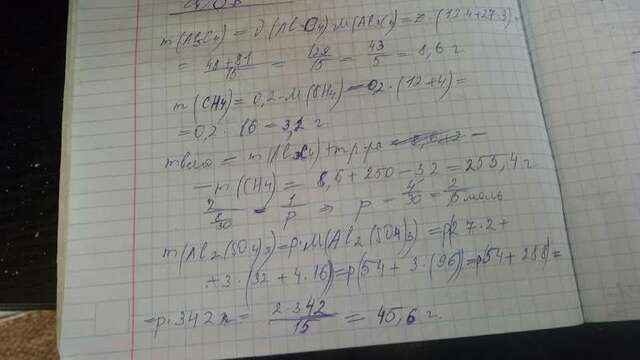 m(Al₃C₄) = ν(Al₃C₄)·M(Al₃C₄) = z·(12·4+27·3).
= 48+81/15 = 129/15 = 43/5 = 8,6 г
m(CH₄) = 0,2·M(CH₄) = 0,2·(12+4) =
= 0,2·16 = 3,2 г.
= m(Al₃C₄) + mр-ра –
– m(CH₄) = 8,6 + 250 – 3,2 = 255,4 г
1/p ⇒ p = 4/30 = 2/15 моль
m(Al₂(SO₄)₃) = p·M(Al₂(SO₄)₃) = p(27·2+
+3·(32+4·16) = p(54+3·(96)) = p(54+288) =
= p·342 = 2·342/15 = 45,6 г.